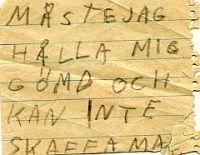 MÅSTEJAG
HÅLLA MIG
GÖMD OCH
KAN INTE
SKAFFA MA